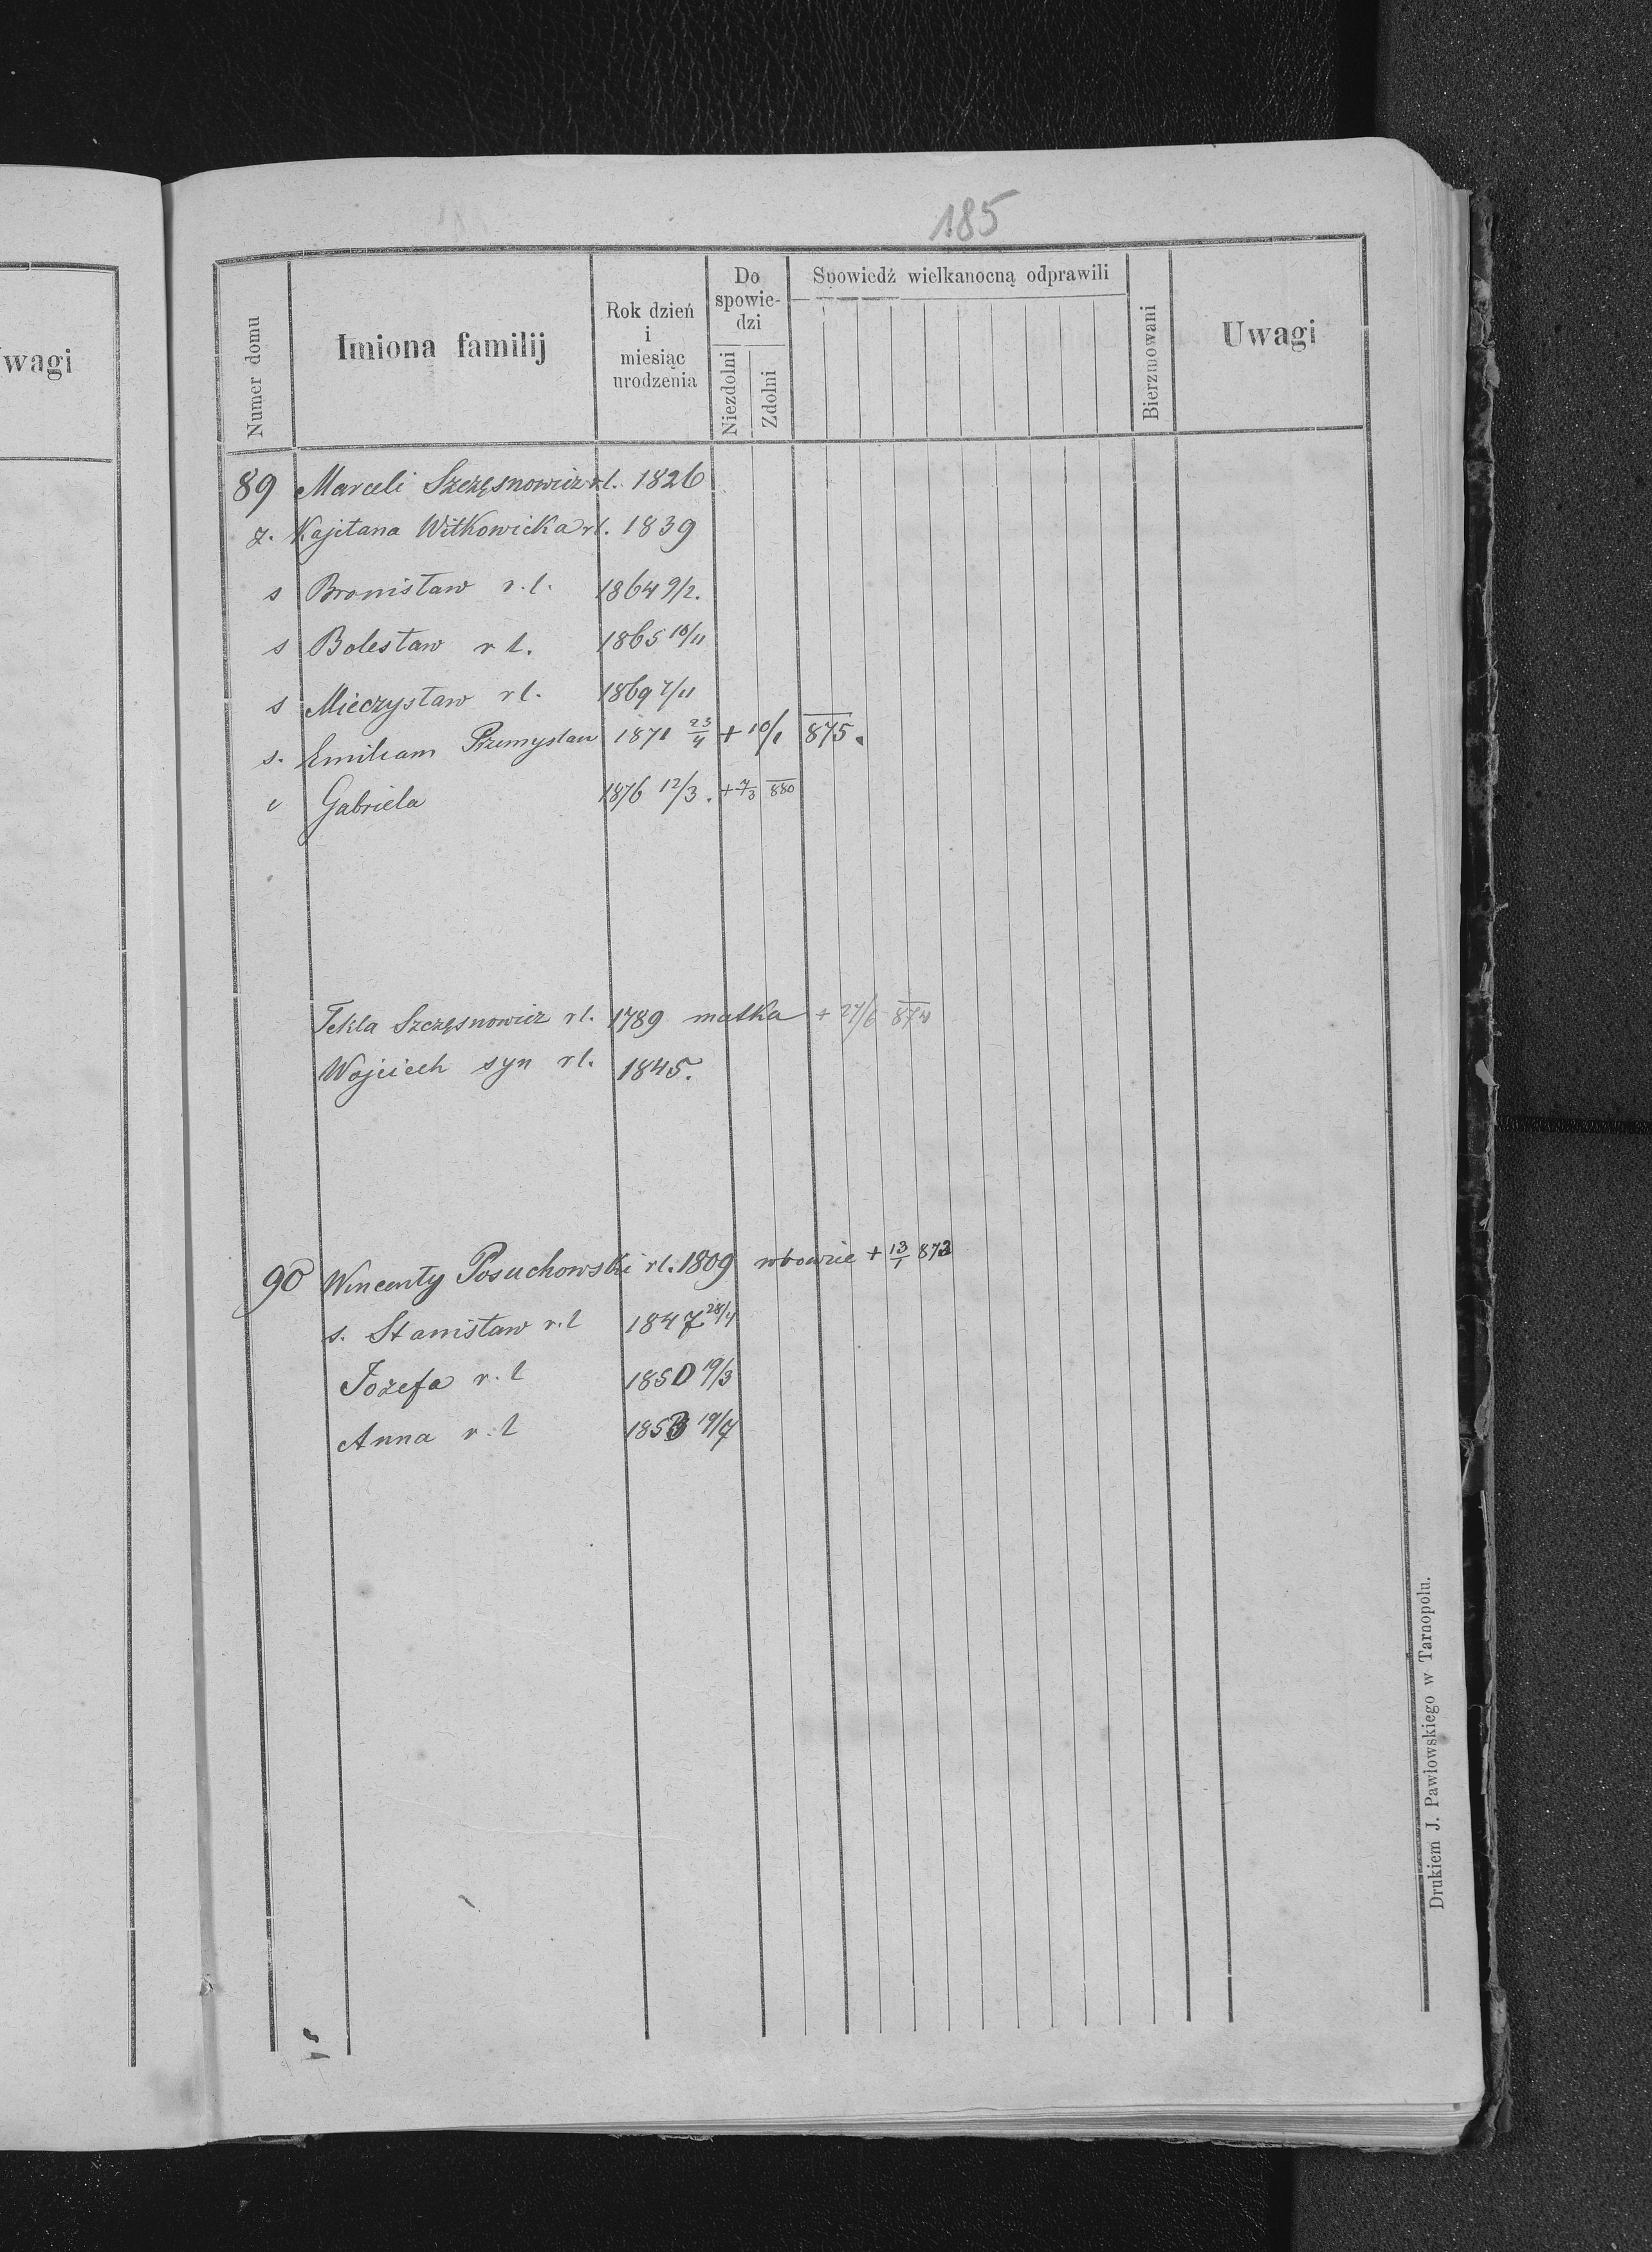 185
wagi
Numer domu
Imiona familij
Rok dzień
i
miesiąc
urodzenia
Do
spowie-
dzi
Niezdolni
Zdolni
Spowiedź wielkanocną odprawili
Bierzmowani
Uwagi
89 Marceli Szczęsnowicz rl. 1826
ż. Kajetana Witkowicka rl. 1839
s Bronisław r.l. 1864 9/2.
s Bolesław r l. 1865 10/11
s Mieczysław rl. 1869 7/11
s. Emiliam Przemysław 1871 23/4 + 10/1 875.
c Gabriela 1876 12/3. + 7/3 880
Tekla Szczęsnowicz rl. 1789 matka + 27/6 874
Wojciech syn rl. 1845.
90 Wincenty Posuchowski rl. 1809 wdowiec + 13/1 873
s. Stanisław r.l 1847 28/4
Jozefa r.l 1850 19/3
Anna r.l 1853 19/7
Drukiem J. Pawłowskiego w Tarnopolu.